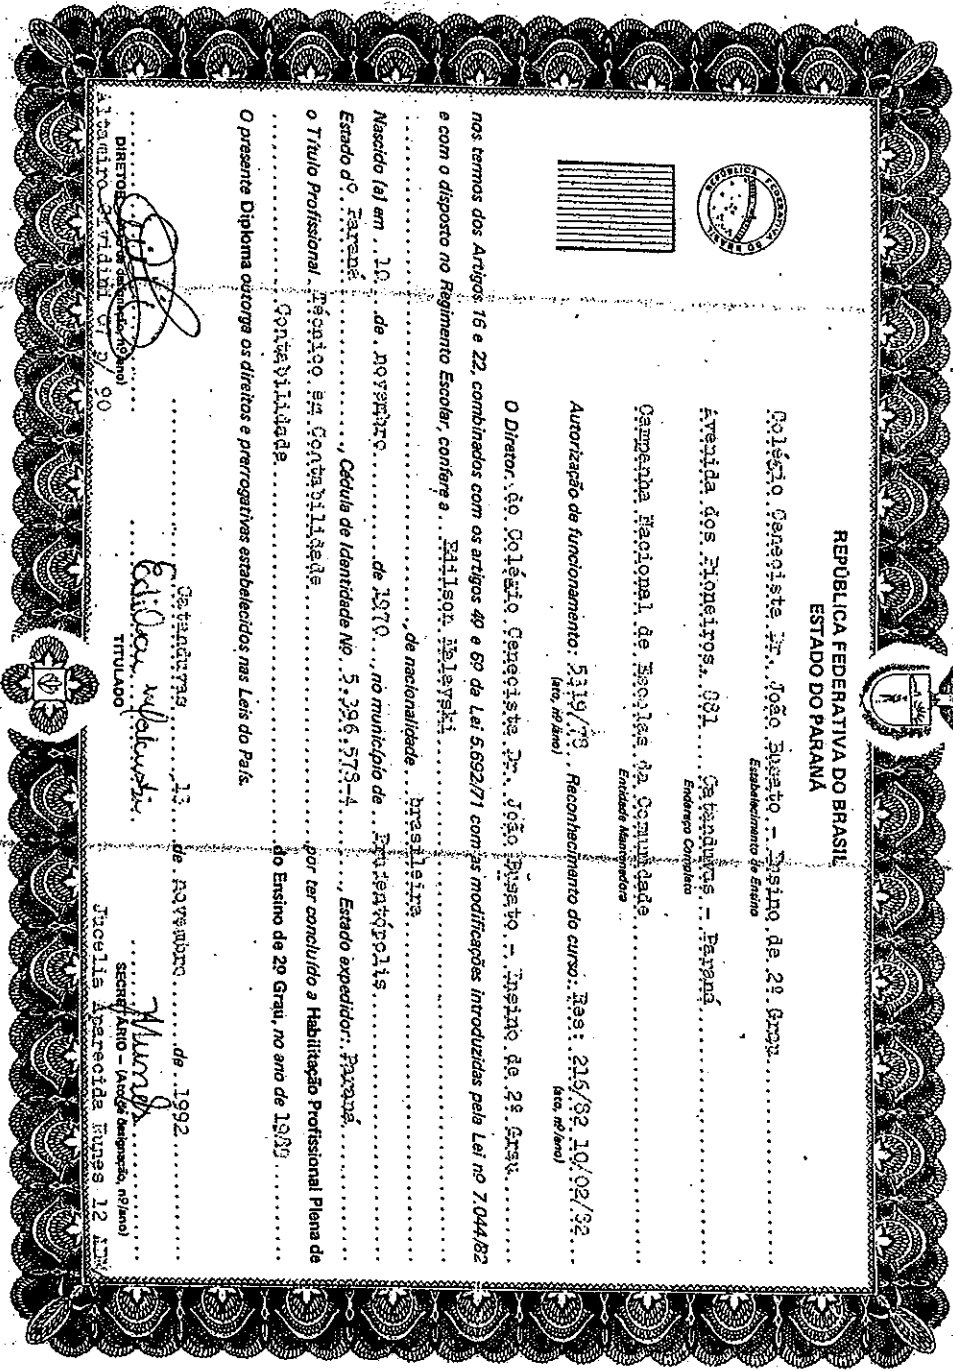 REPÚBLICA FEDERATIVA DO BRASIL
ESTADO DO PARANÁ
REPÚBLICA FEDERATIVA DO BRASIL
Colégio Cenecista Dr. João Busato - Ensino de 2º Grau
Estabelecimento de Ensino
Avenida dos Pioneiros, 081 Catanduvas - Paraná
Endereço Completo
Campanha Nacional de Escolas da Comunidade
Entidade Mantenedora
Autorização de funcionamento: 5319/78 Reconhecimento do curso: Res: 216/82 10/02/82
(ato, nº/ano) (ato, nº/ano)
O Diretor do Colégio Cenecista Dr. João Busato - Ensino de 2º Grau
nos termos dos Artigos 16 e 22, combinados com os artigos 4º e 6º da Lei 5.692/71 com as modificações introduzidas pela Lei nº 7.044/82
e com o disposto no Regimento Escolar, confere a Edilson Malevski
, de nacionalidade brasileira
Nascido (a) em 10 de novembro de 1970, no município de Prudentópolis
Estado do Paraná, Cédula de Identidade Nº 5.396.573-4, Estado expedidor: Paraná
o Título Profissional Técnico em Contabilidade por ter concluído a Habilitação Profissional Plena de
Contabilidade do Ensino de 2º Grau, no ano de
O presente Diploma outorga os direitos e prerrogativas estabelecidos nas Leis do País.
Catanduvas, 13 de novembro de 1992
DIRETOR nº/ano) TITULADO SECRETÁRIO - (Ato de Designação, nº/ano)
Altamiro Dividini 90 Jucelia Aparecida Nunes 12